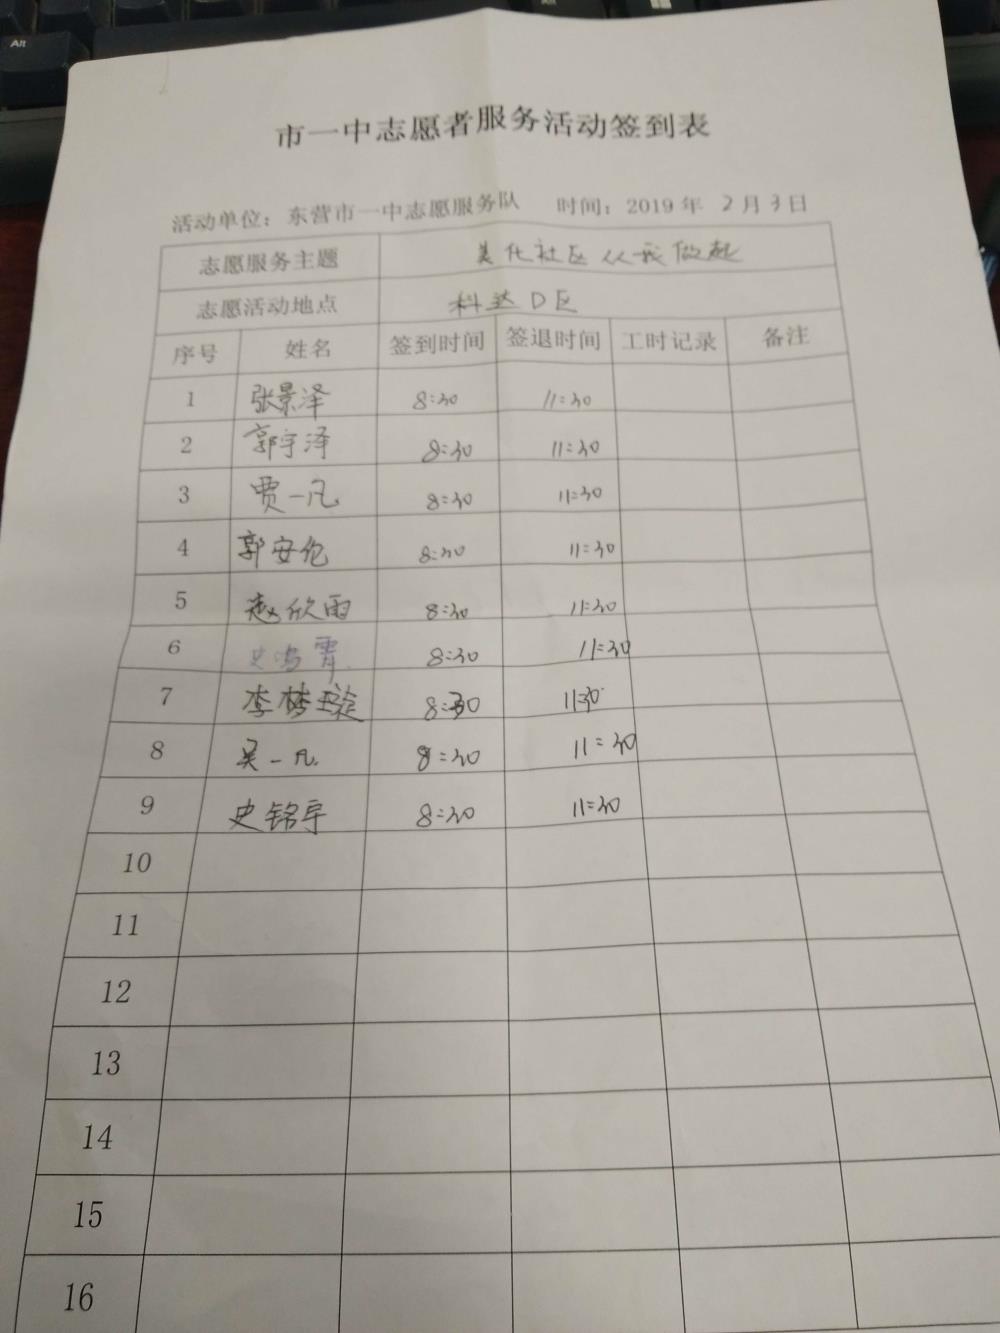 Alt
市一中志愿者服务活动签到表
活动单位：东营市一中志愿服务队 时间：2019年 2月 3日
志愿服务主题 美化社区从我做起
志愿活动地点 科达D区
序号 姓名 签到时间 签退时间 工时记录 备注
1 张景泽 8:30 11:30
2 郭宇泽 8:30 11:30
3 贾一凡 8:30 11:30
4 郭安伦 8:30 11:30
5 赵欣雨 8:30 11:30
6 史鸿霄 8:30 11:30
7 李梦璇 8:30 11:30
8 吴一凡 8:30 11:30
9 史铭宇 8:30 11:30
10
11
12
13
14
15
16